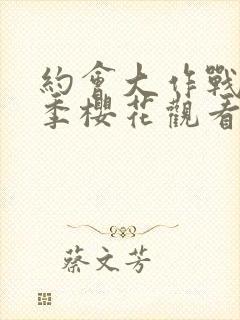 約會大作戰
季櫻花觀看
蔡文芳